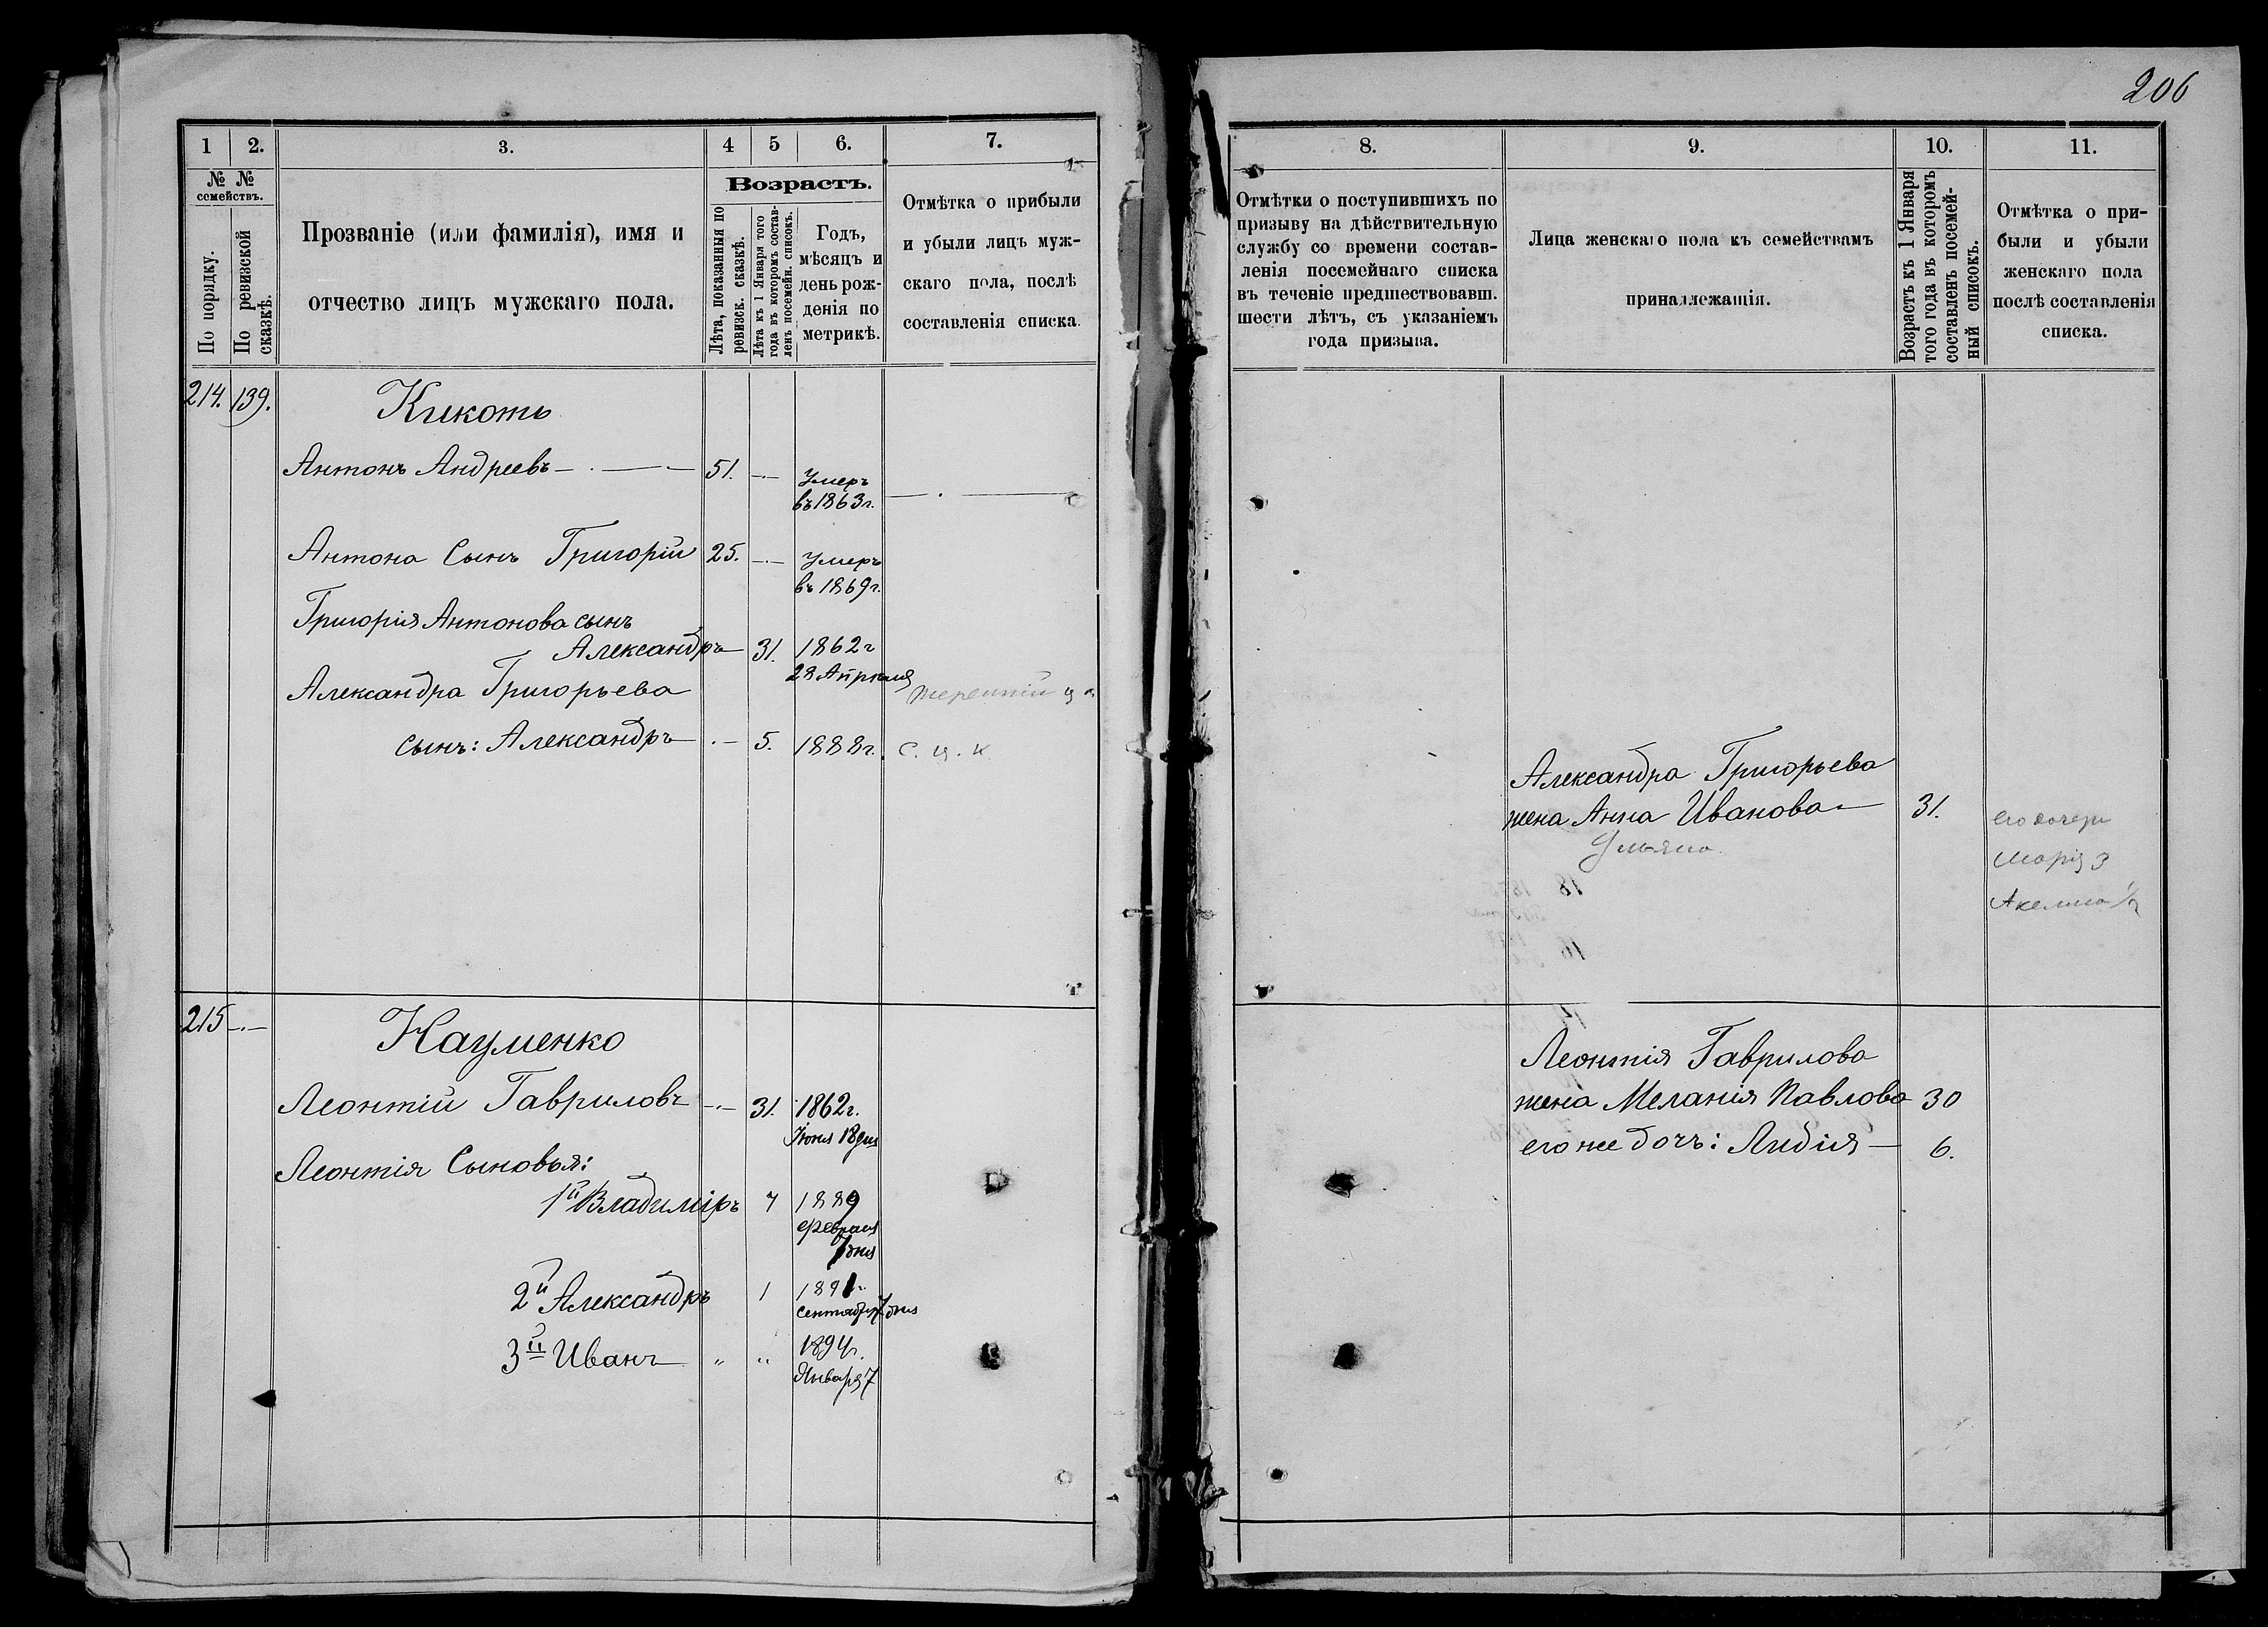 206
1
2.
3.
4
5
6.
7.
№ №
семействъ.
По порядку.
По ревизской
сказкѣ.
Прозваніе (или фамилія), имя и
отчество лицъ мужскаго пола.
Возрастъ.
Лѣта, показанныя по
ревизск. сказкѣ.
Лѣта къ 1 Января того
года въ которомъ состав-
ленъ посемейн. списокъ.
Годъ,
мѣсяцъ и
день рож-
денія по
метрикѣ.
Отмѣтка о прибыли
и убыли лицъ муж-
скаго пола, послѣ
составленія списка.
214. 139. Кикоть
Антонъ Андреевъ — . — — 51. —.— Умеръ
въ 1863 г. — . —
Антона Сынъ Григорій 25. —.— Умеръ
въ 1869 г.
Григорія Антонова сынъ
Александръ — 31. 1862 г
28 Апрѣля
Александра Григорьева
сынъ: Александръ — . — 5. 1888 г. с. ц. к
215 —.— Науменко
Леонтій Гавриловъ —.— 31. 1862 г.
Іюня 18 дня
Леонтія Сыновья:
1й Владиміръ 7 1889
февраля
1 дня
2й Александръ 1 1891 г.
сентября 7 дня
3й Иванъ — " " 1894 г.
Января 7
8.
9.
10.
11.
Отмѣтки о поступившихъ по
призыву на дѣйствительную
службу со времени состав-
ленія посемейнаго списка
въ теченіе предшествовавш.
шести лѣтъ, съ указаніемъ
года призыва.
Лица женскаго пола къ семействамъ
принадлежащія.
Возрастъ къ 1 Января
того года въ которомъ
составленъ посемей-
ный списокъ.
Отмѣтка о при-
были и убыли
женскаго пола
послѣ составленія
списка.
Александра Григорьева
жена Анна Иванова — 31. его дочери
Ульяна
Марія 3
Акелина 1/2
Леонтія Гаврилова
жена Меланія Павлова 30
его же дочь: Лидія — 6.